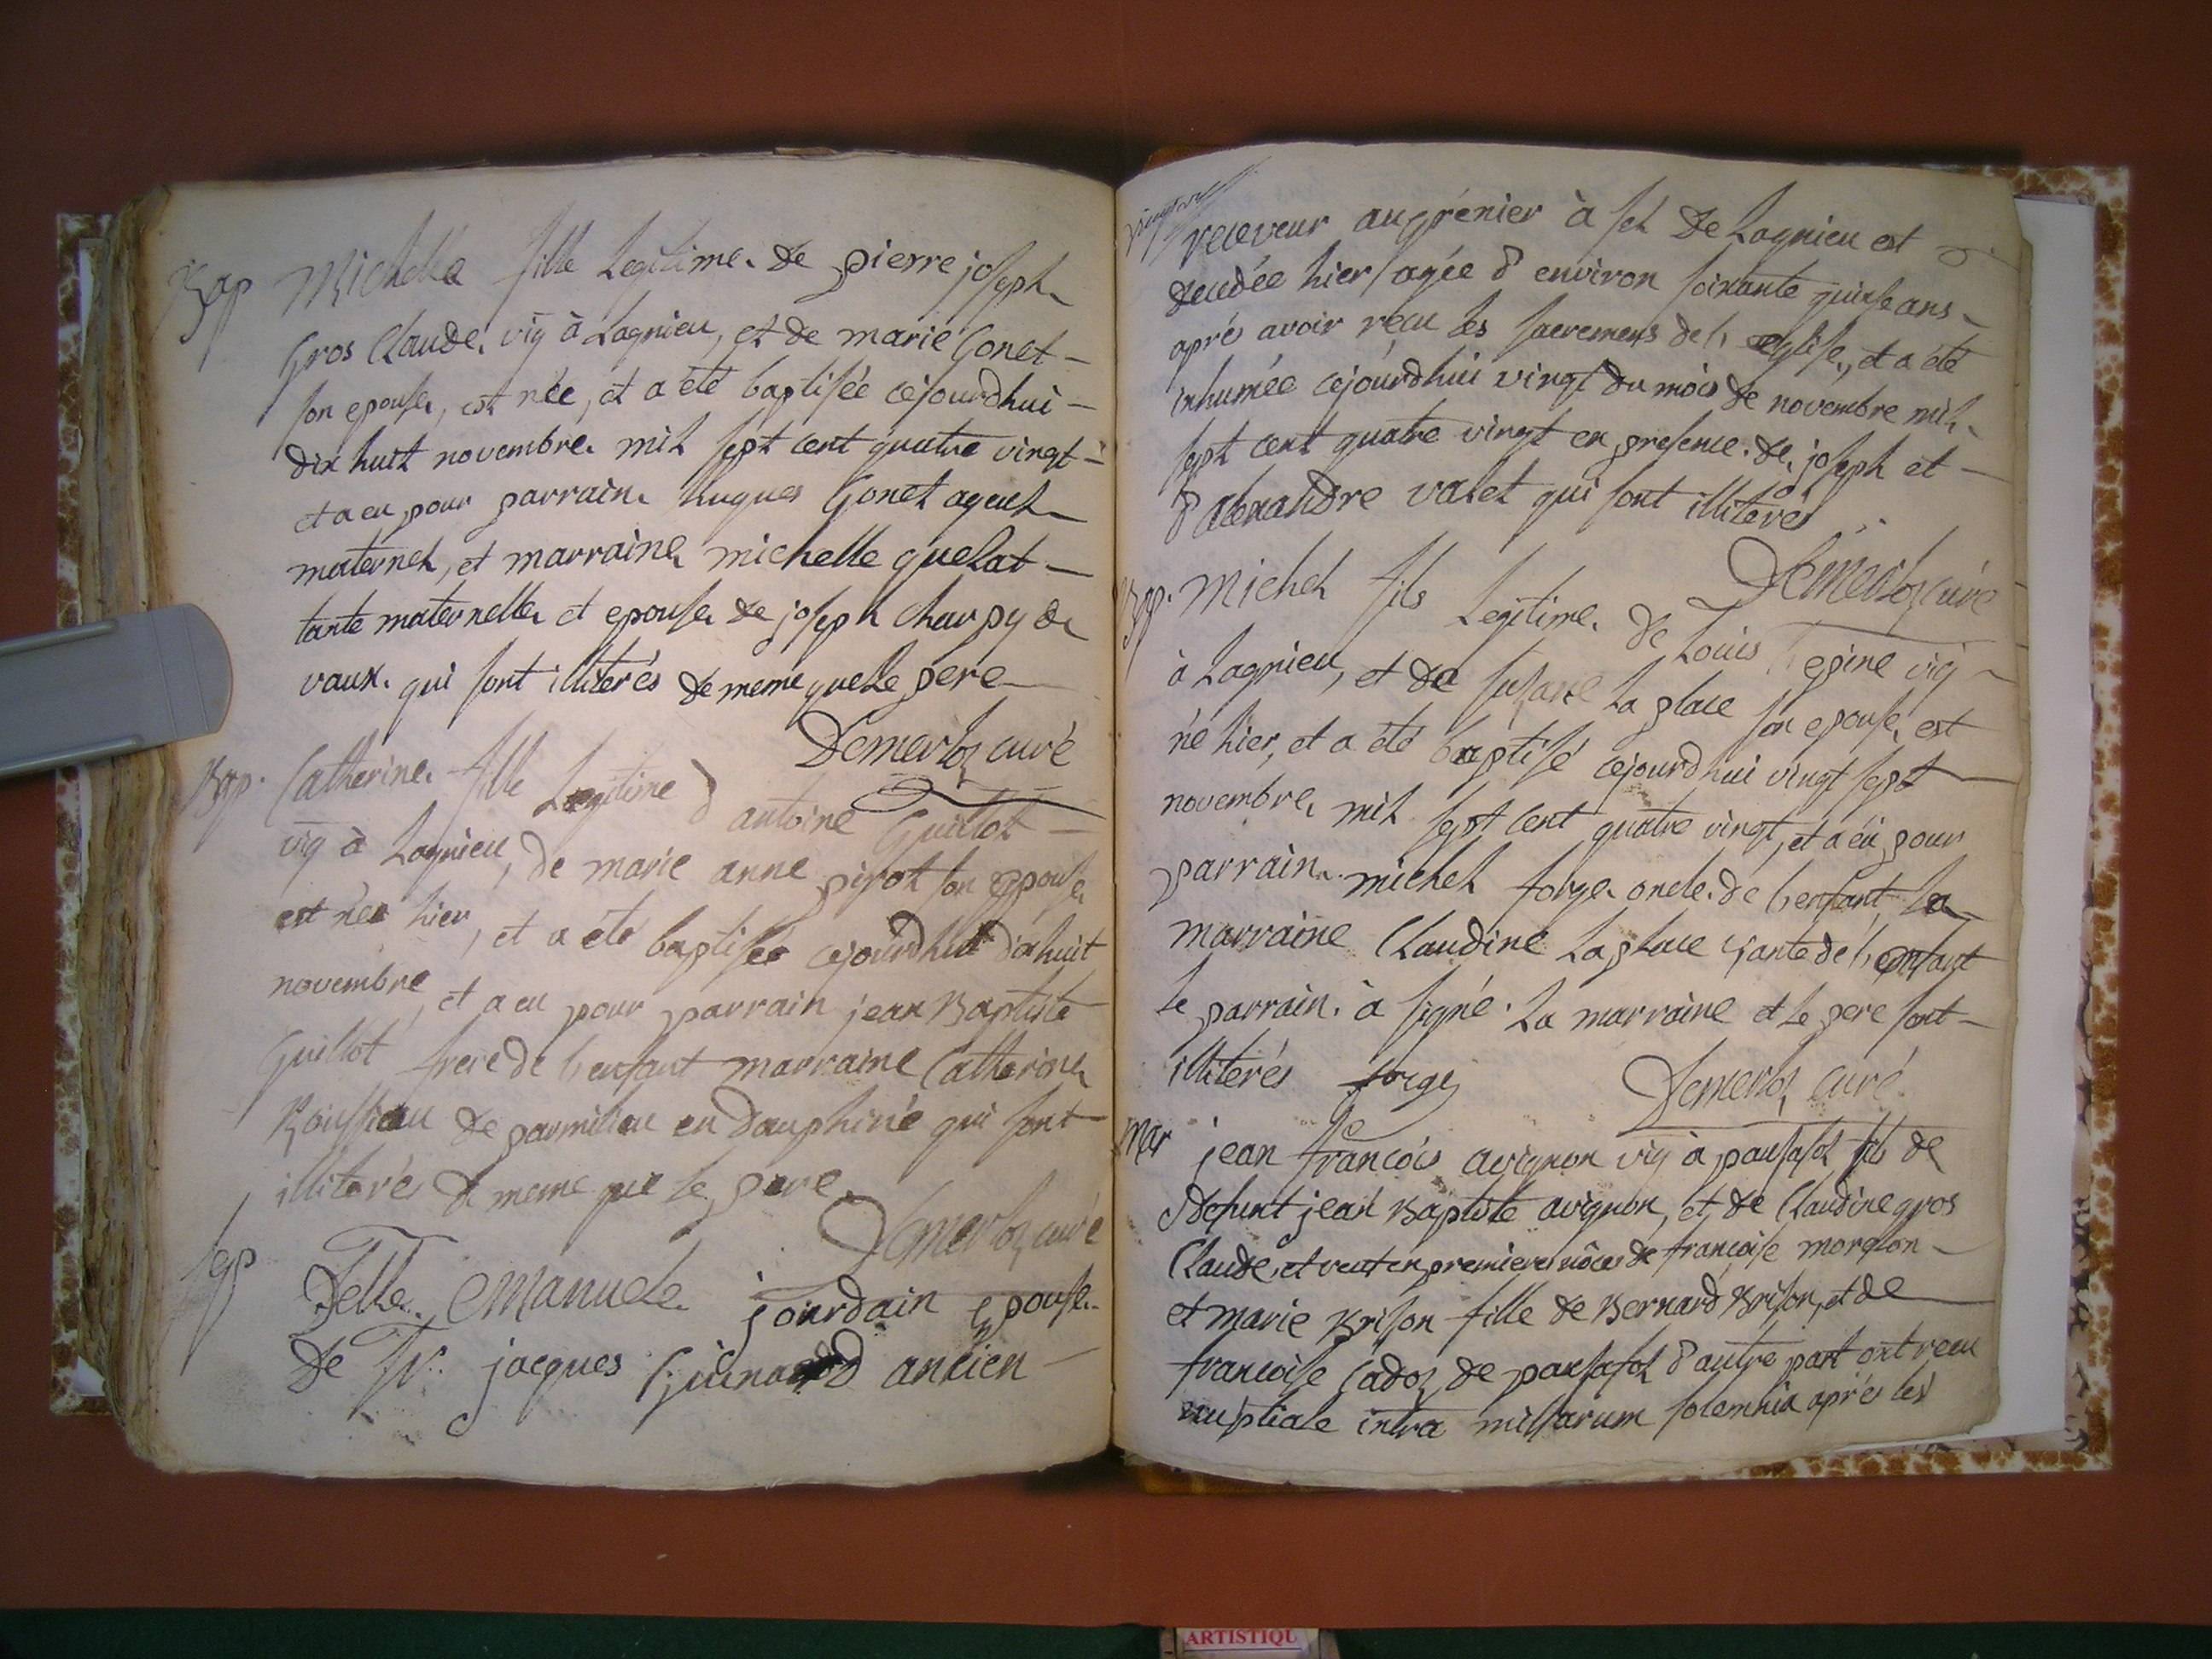 Bap Michelle fille Legitime de pierre joseph
Gros Claude, vig à Lagnieu, et de marie Gonet
son epouse, est née, et a été baptisée cejourdhui
dix huit novembre mil sept cent quatre vingt
et a eu pour parrain hugues Gonet ayeul
maternel, et marraine michelle quelat
tante maternelle et epouse de joseph charpy de
vaux. qui sont illiterés de meme que Le pere
Demerloz curé
Bap. Catherine fille Legitime d antoine Guillot
vig à Lagnieu, de marie anne pirot son epouse
est née hier, et a été baptisée cejourdhui dixhuit
novembre, et a eu pour parrain jean Baptiste
Guillot frere de l enfant marraine Catherine
de parmilieu en Dauphiné qui sont
illiterés de meme que le pere
Demerloz curé
sep Delle. Emanuele jourdain epouse
de Sr. jacques Guinard ancien
receveur au grénier à sel de Lagnieu est
decedée hier agée d environ soixante quinse ans
apré avoir reçu les sacremens de l eglise, et a été
inhumée cejourdhui vingt du mois de novembre mil
sept cent quatre vingt en presence de joseph et
d alexandre valet qui sont illiterés
Demerloz curé
Bap. Michel fils Legitime de Louis epine vig
à Lagnieu, et de susane La place son epouse, est
né hier, et a été baptisé cejourdhui vingt sept
novembre mil sept cent quatre vingt, et a eu pour
parrain michel forge oncle de l enfant, La
marraine Claudine La place tante de l enfant
le parrain à signé. La marraine et le pere sont
illiterés forge Demerloz curé
Mar jean françois avignon vig à pousafol fils de
defunt jean Baptiste avignon, et de Claudine gros
Claude, et veuf en premieres nôces de françoise morglon
et marie Brison fille de Bernard Brison, et de
françoise Cadoz de pousafol d autre part ont recu
nuptiale intra missarum solemnia aprés les